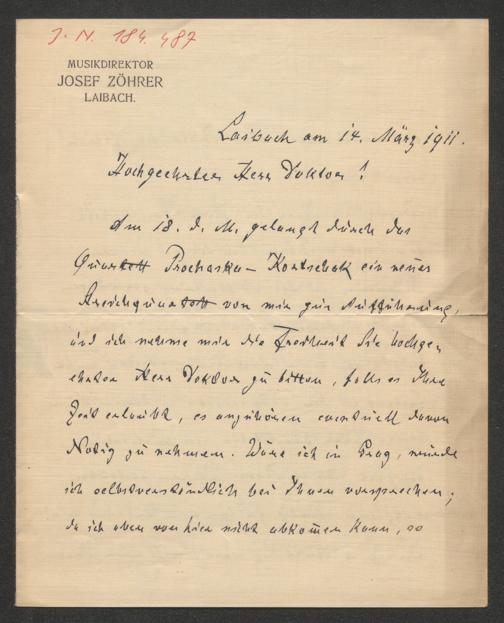 J. N. 184.487
MUSIKDIREKTOR
JOSEF ZÖHRER
LAIBACH.
Laibach am 14. März 1911.
Hochgeehrter Herr Doktor!
Am 18. d. M. gelangt durch das
Quartett Prochaska – Kortschak ein neues
Streichquartett von mir zur Aufführung,
und ich nehme mir die Freiheit Sie hochge,
ehrter Herr Doktor zu bitten, falls es Ihre
Zeit erlaubt, es anzuhören eventuell davon
Notiz zu nehmen. Wäre ich in Prag, würde
ich selbstverständlich bei Ihnen vorsprechen;
da ich aber von hier nicht abkom̅en kann, so